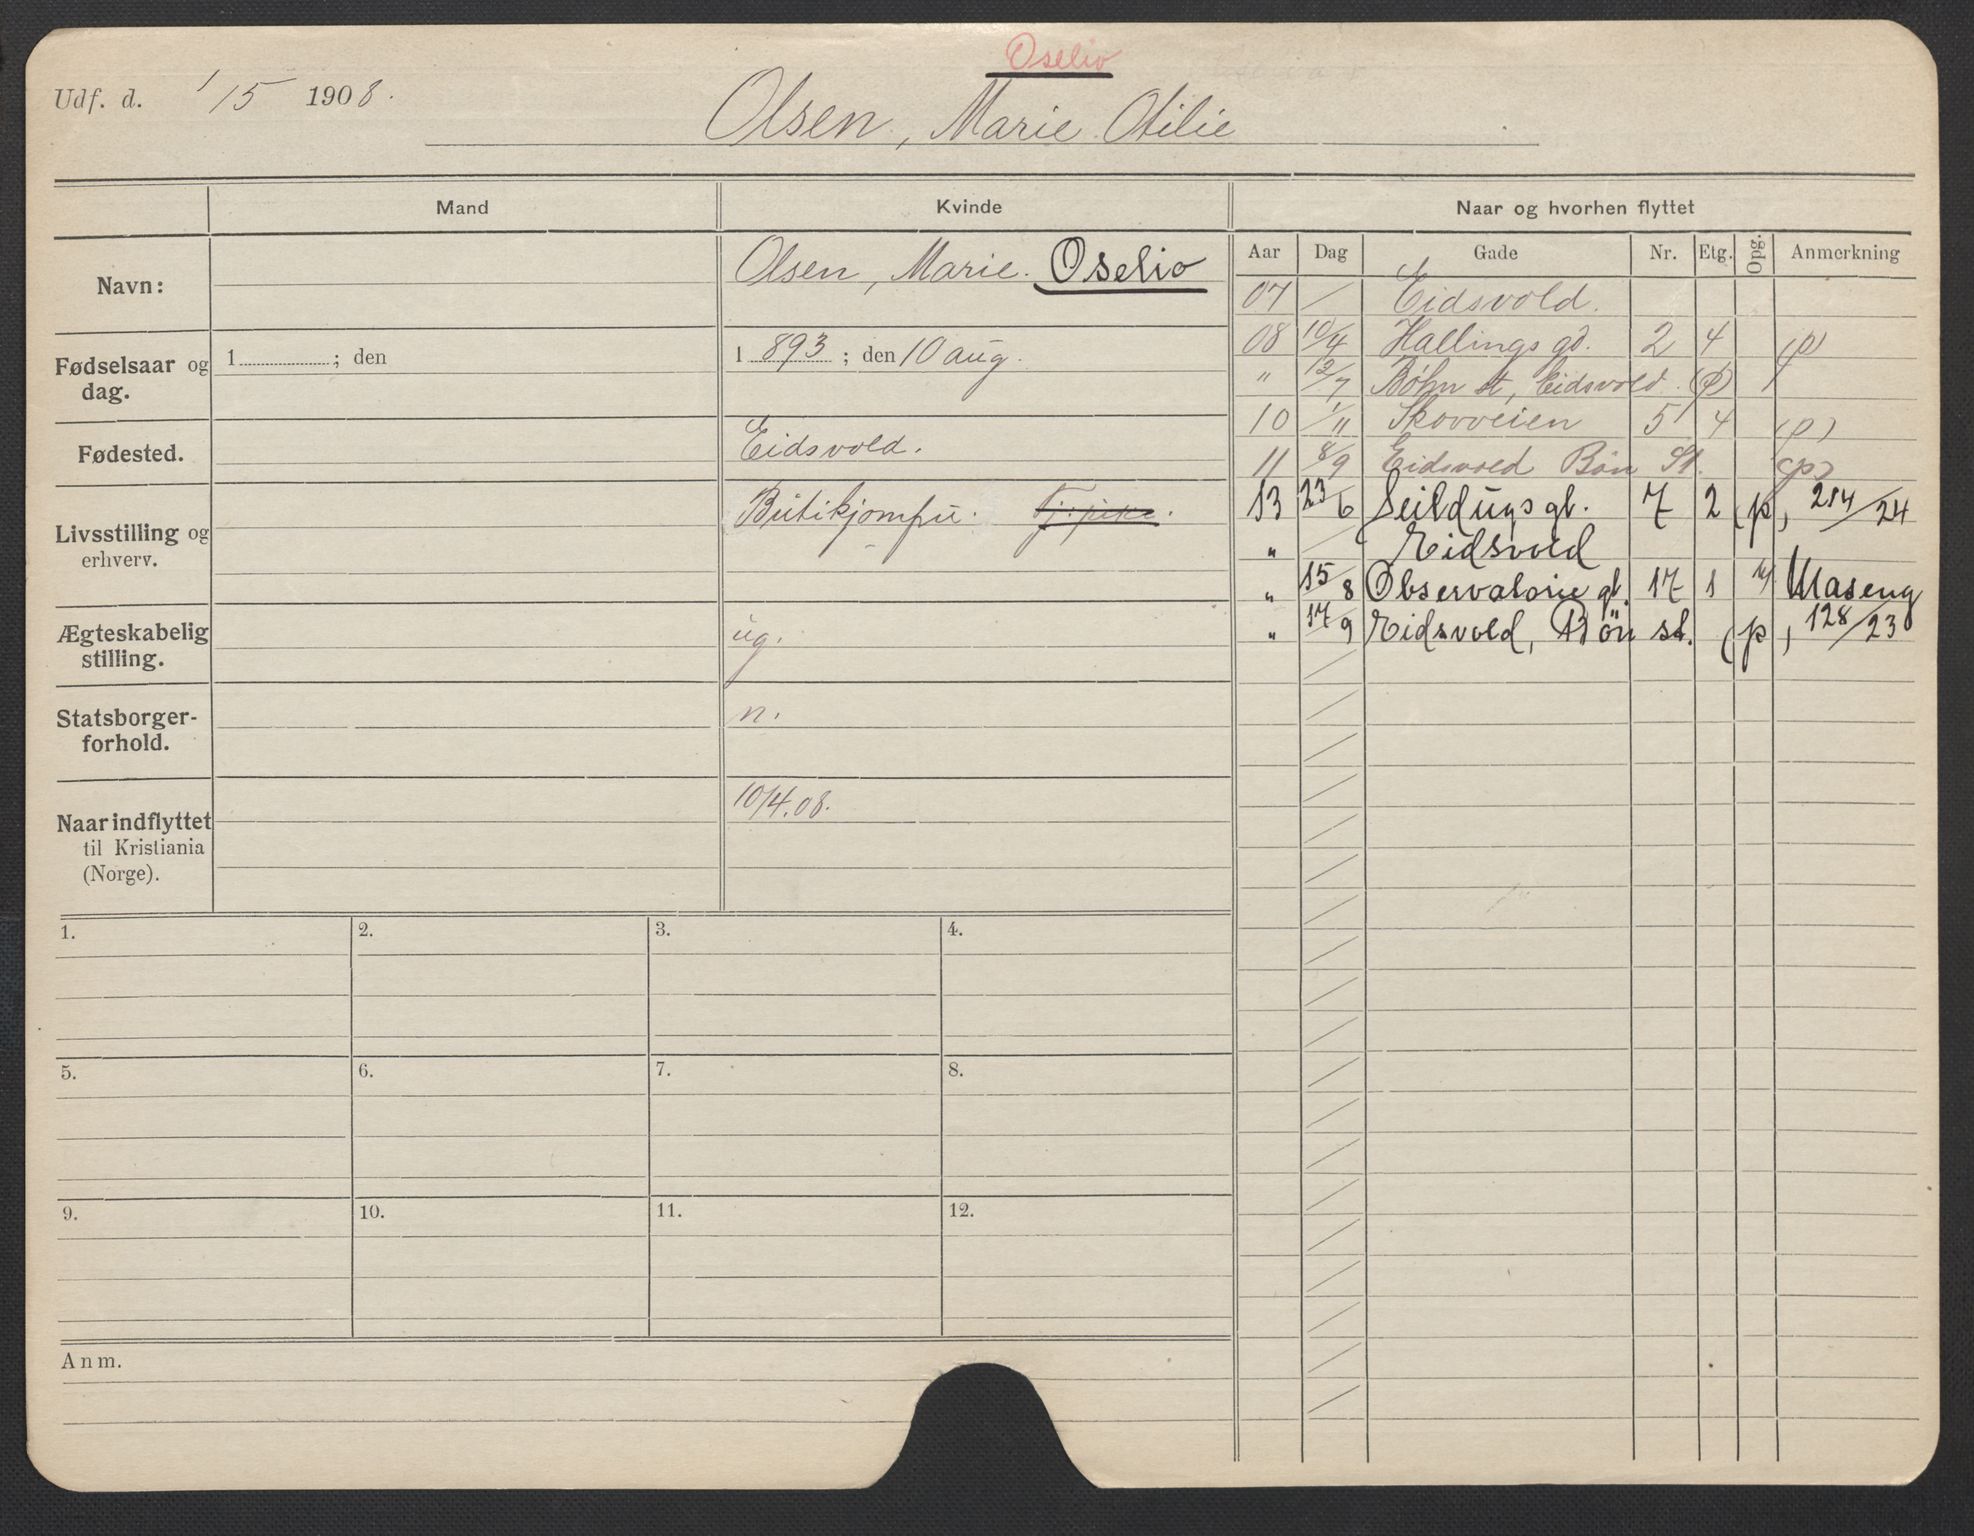 Oselio
Udf. d. 1/5 1908.
Olsen, Marie Otilie
Mand
Kvinde
Naar og hvorhen flyttet
Aar Dag Gade Nr. Etg. Opg. Anmerkning
Navn:
Olsen, Marie. Oselio
Fødselsaar og dag.
1 ; den
1893 ; den 10 aug.
Fødested.
Eidsvold.
Livsstilling og erhverv.
Butikjomfru. Tj.pike.
Ægteskabelig stilling.
ug.
Statsborgerforhold.
n.
Naar indflyttet til Kristiania (Norge).
10/4.08.
07 / Eidsvold.
08 10/4 Hallings gd. 2 4 (p)
" 12/7 Bøhn st, Eidsvold. (p)
10 1/11 Skovveien 5 4 (p)
11 8/9 Eidsvold Bøn St. (p)
13 23/6 Seildugs gt. 7 2 (p, 214/24
" / Eidsvold
" 15/8 Observatorie gt. 17 1 Maseng
" 17/9 Eidsvold, Bön st. (p, 128/23
1. 2. 3. 4.
5. 6. 7. 8.
9. 10. 11. 12.
Anm.